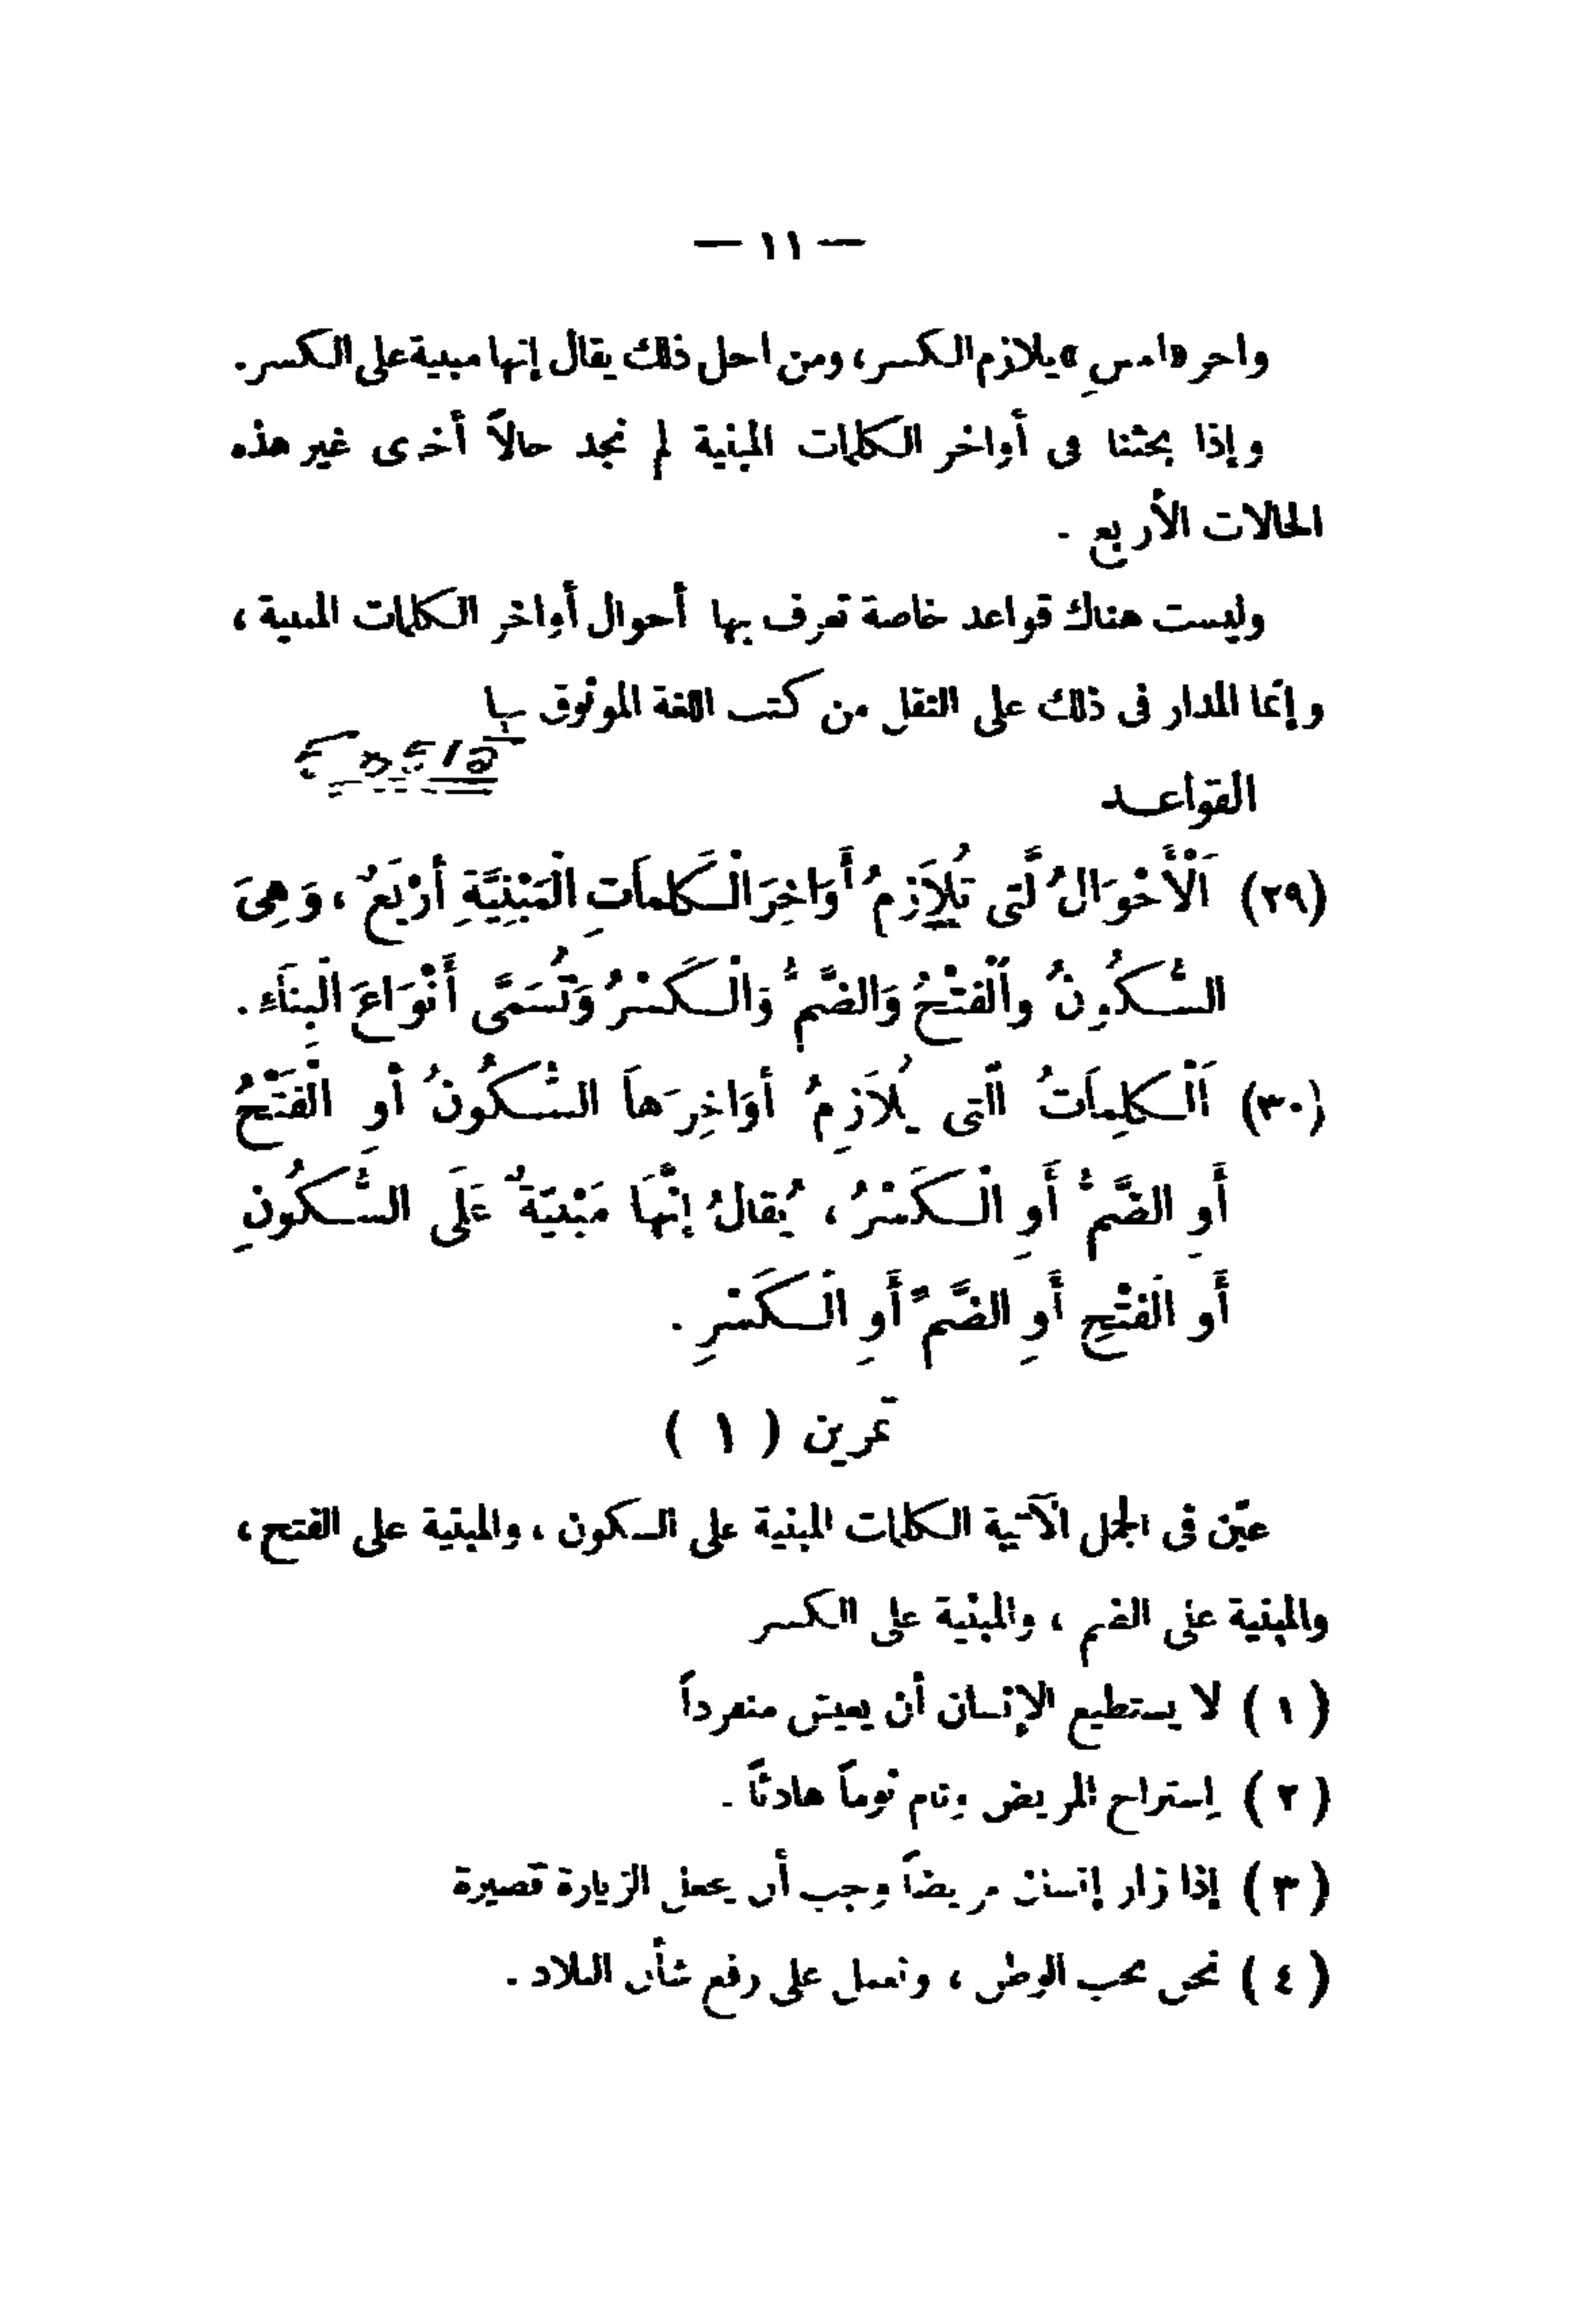 — ١١ —
وآخر «أمسِ» يلازم الكسر، ومن أجل ذلك يقال إنها مبنية على الكسر.
وإذا بحثنا فى أواخر الكلمات المبنية لم نجد حالاً أخرى غير هذه
الحالات الأربع .
وليست هناك قواعد خاصة تعرف بها أحوال أواخر الكلمات المبنية ،
وإنما المدار فى ذلك على النقل من كتب اللغة الموثوق بها
القواعـد
(٢٩) اَلْأَحْوَالُ لَّتى تُلاَزِمُ أَوَاخِرَ الْـكَلمَاتِ الْمَبْنِيَّةِ أَرْبَعٌ ، وَهِىَ
السُّـكُونُ والْفَتْحُ وَالضَّمُّ وَالْـكَسْرُ وَتُسَمَّى أَنْوَاعَ الْبِنَاءِ .
(٣٠) اَلْـكَلِمَاتُ الَّتى يُلاَزِمُ أَوَاخِرَهَا السُّـكُونُ أَوِ الْفَتْحُ
أَوِ الضَّمُّ أَوِ الْـكَسْرُ ، يُقَالُ إِنَّهَا مَبْنيَّةٌ عَلَى السُّـكُونِ
أَو الْفَتْحِ أَوِ الضَّمِّ أَوِ الْـكَسْرِ .
تمرين ( ١ )
عيّن فى الجمل الآتية الكلمات المبنية على السكون ، والمبنية على الفتح ،
والمبنية على الضم ، والمبنية على الكسر
( ١ ) لا يستطيع الإنسان أن يعيش منفرداً
( ٢ ) إستراح المريض ونام نوماً هادئاً .
( ٣ ) إذا زار إنسان مريضاً وجب أن يجعل الزيارة قصيرة
( ٤ ) نحن نحب الوطن ، ونعمل على رفع شأن البلاد .